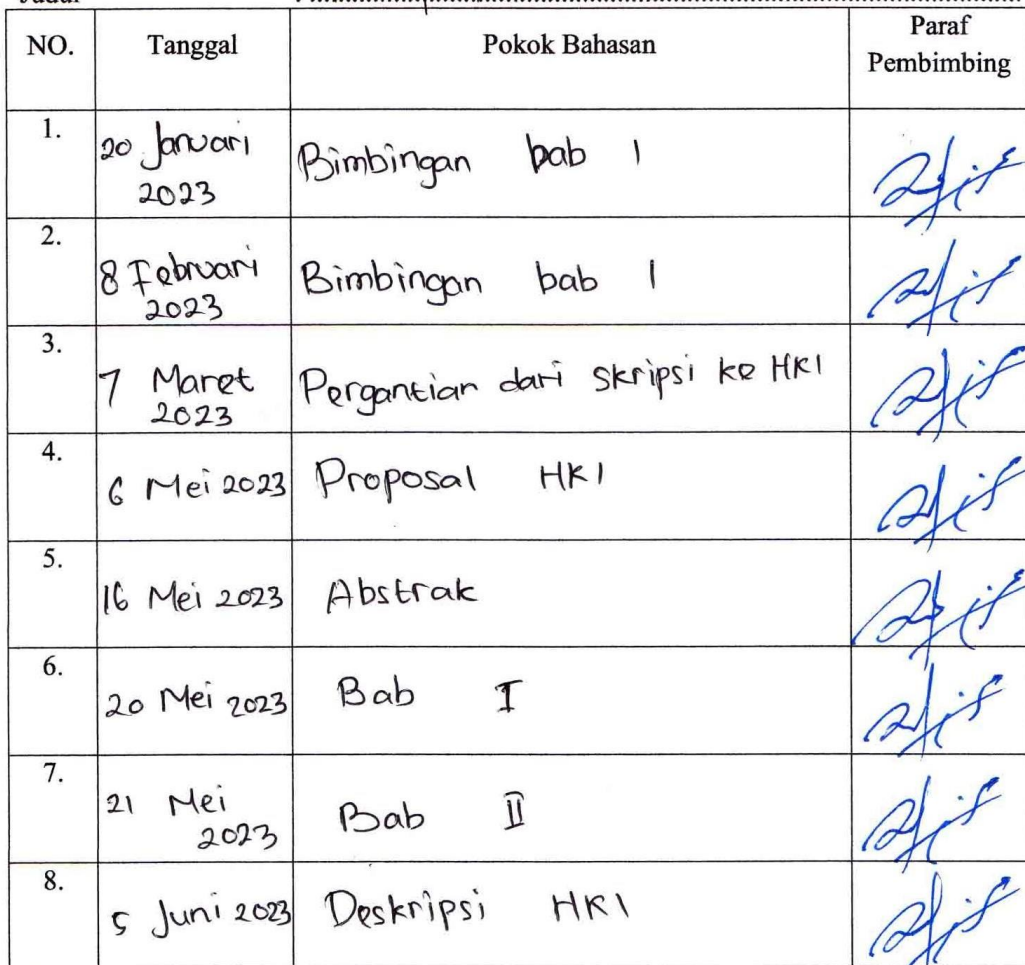 NO. Tanggal Pokok Bahasan Paraf
Pembimbing
1.
20 Januari
2023
Bimbingan bab 1
2.
8 Februari
2023
Bimbingan bab 1
3.
7 Maret
2023
Pergantian dari skripsi ke HKI
4.
6 Mei 2023 Proposal HKI
5.
16 Mei 2023 Abstrak
6.
20 Mei 2023 Bab I
7.
21 Mei
2023
Bab II
8.
5 Juni 2023 Deskripsi HKI